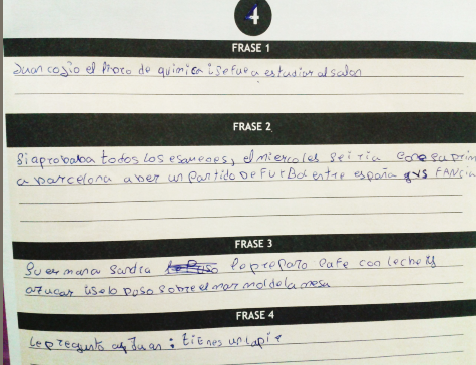 4
FRASE 1
Juan cogio el livro de quimica isefue a estudiar al salon
FRASE 2
Si aprobaba todos los esamenes, el miercoles seiria con su prim
a barcelona aber un partido DefutBol entre españa
FRASE 3
Su ermana Sandra le puso le preparo cafe con leche
azucar iselo puso sobre el marmol de la mesa
FRASE 4
Le pregunto a Juan: tienes un lapiz